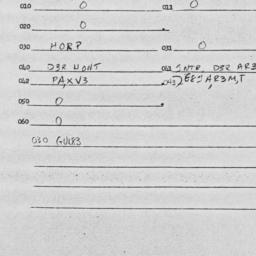 010 0 011 0
020 0
030 MORP 031 0
040 D3R MONT 041 INTR, D3R AR3
042 PA,XV3 043 AR3M,T
050 0
060 0
030 GUL83